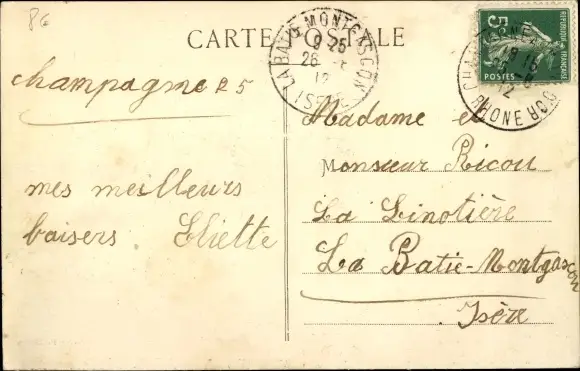 86
CARTE POSTALE
LA BATIE MONTGASCON
9 25
26
12
ISERE
5c
POSTES
REPUBLIQUE FRANÇAISE
18 15
12
RHONE
Champagne 25
mes meilleurs
baisers. Eliette
Madame et
Monsieur Ricou
La Linotière
La Batie-Montgascon
Isère